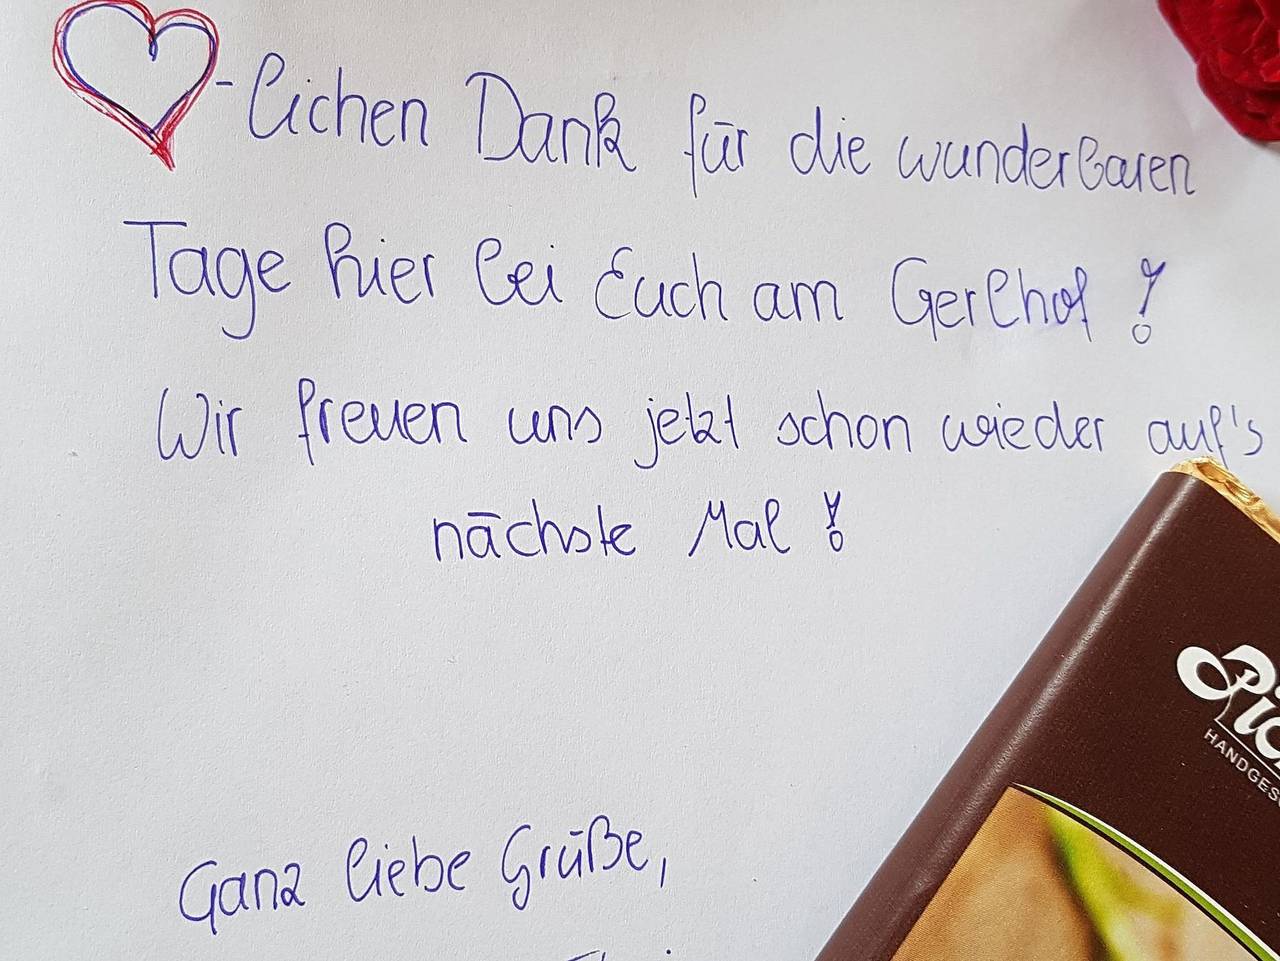 -lichen Dank für die wunderbaren
Tage hier bei Euch am Gerlhof!
Wir freuen uns jetzt schon wieder auf's
nächste Mal!
Ganz liebe Grüße,